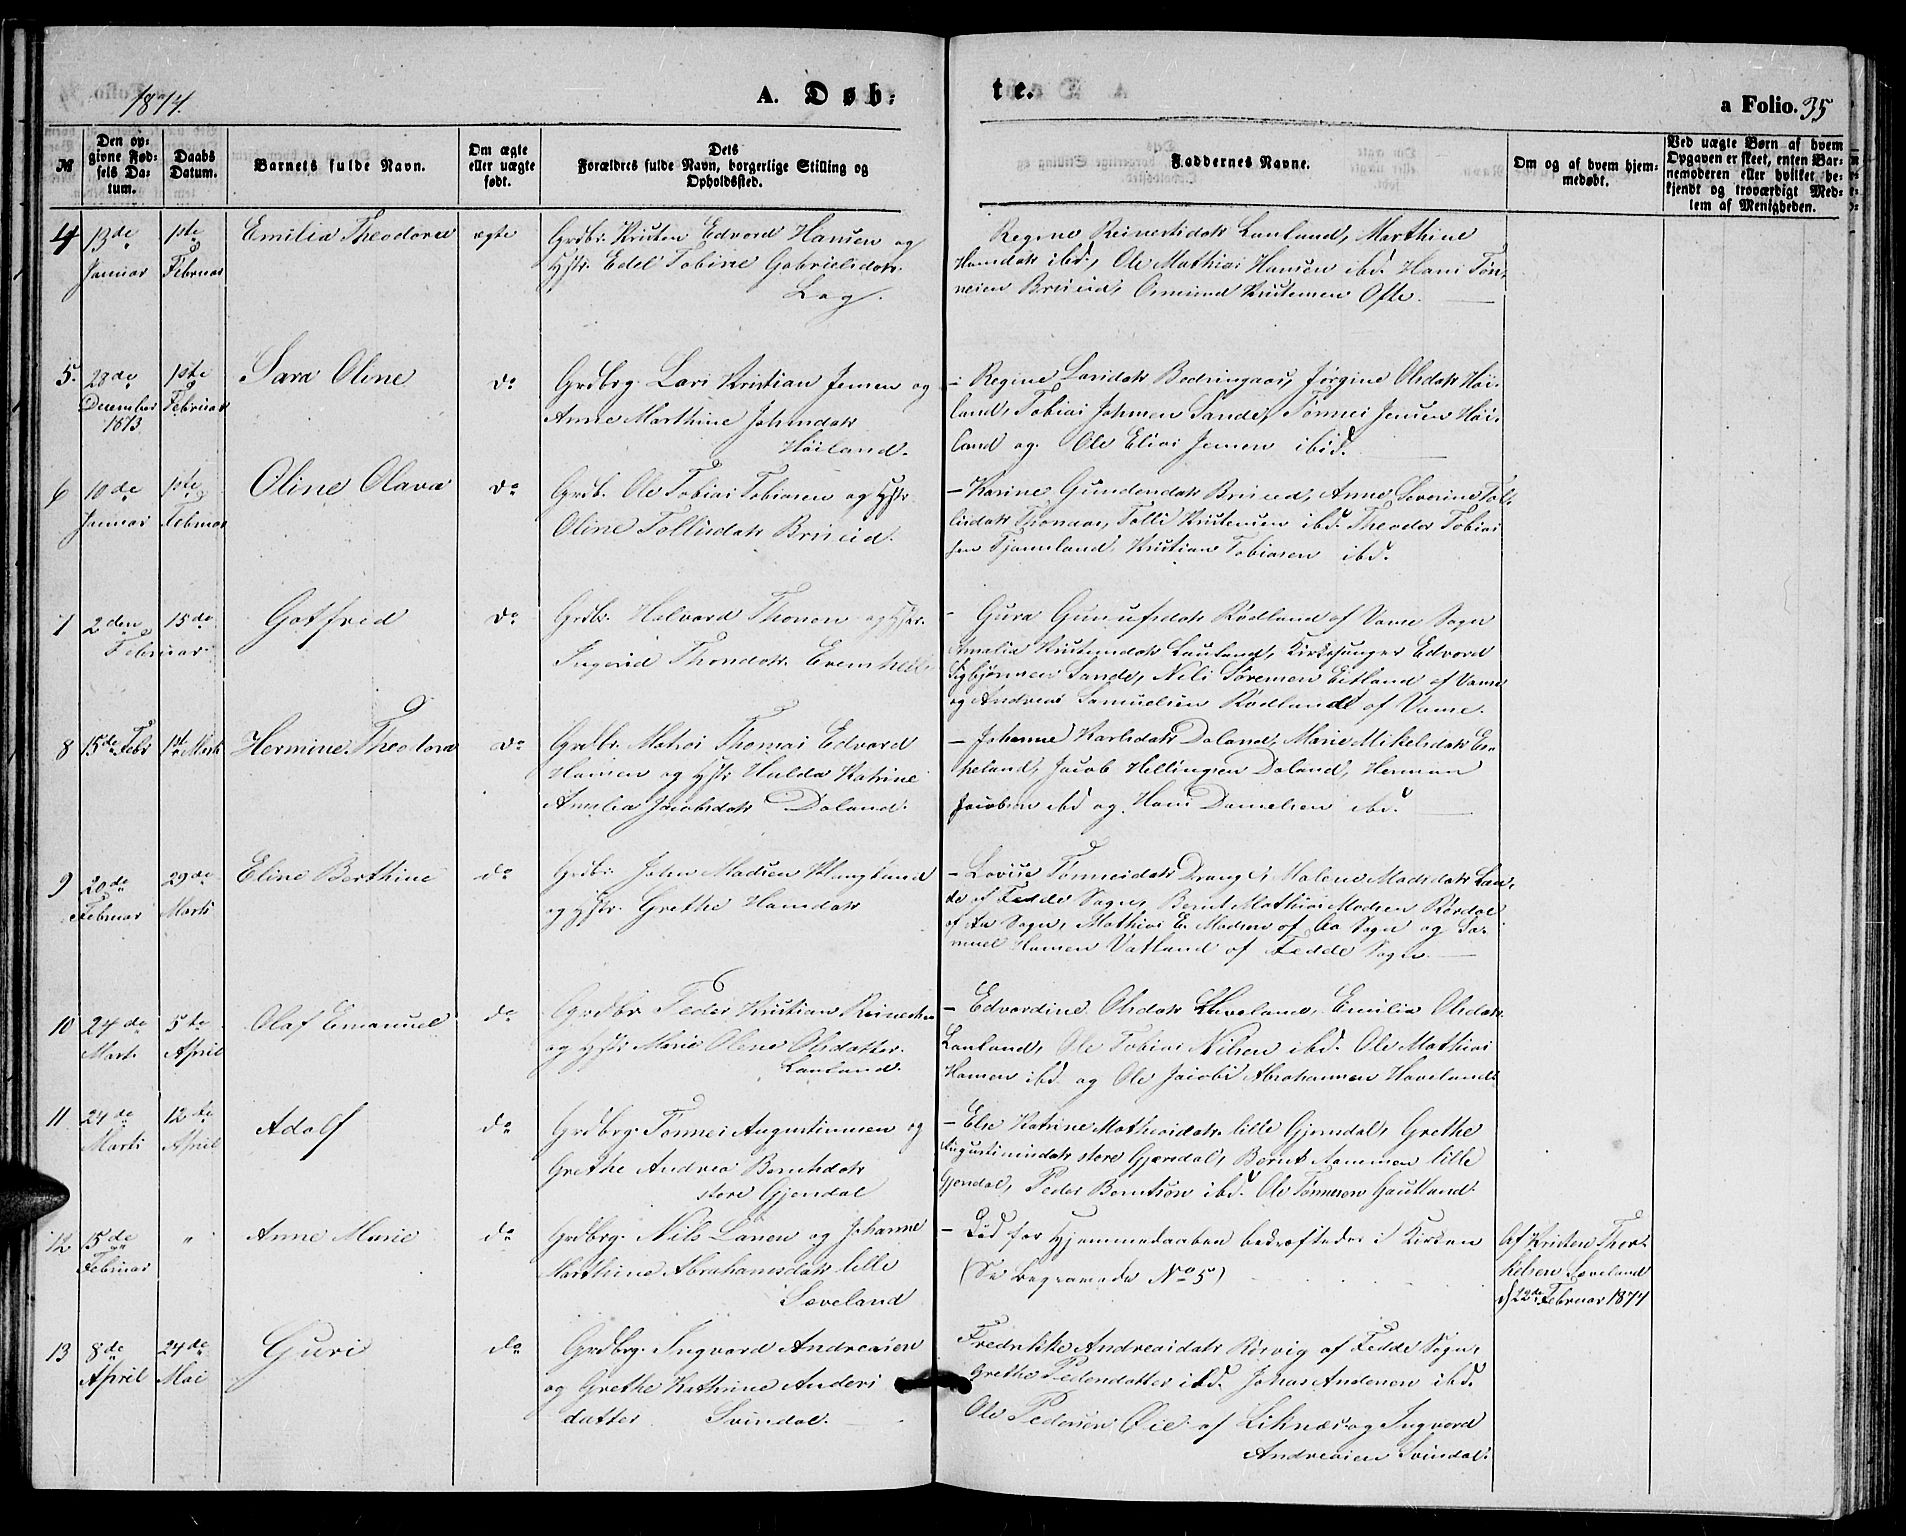 1874.
A. Døb:
te.
a Folio. 35
№
Den op-
givne Fød-
sels Da-
tum.
Daabs
Datum.
Barnets fulde Navn.
Om ægte
eller uægte
født.
Dets
Forældres fulde Navn, borgerlige Stilling og
Opholdssted.
Faddernes Navne.
Om og af hvem hjem-
medøbt.
Ved uægte Børn af hvem
Opgaven er skeet, enten Bar-
nemoderen eller hvilket be-
kjendt og troværdigt Med-
lem af Menigheden.
4
13de
Januar
1ste
Februar
Emilia Theodore
ægte
Grdbr. Kristen Edvard Hansen og
Hstr. Edel Tobine Gabrielsdatr.
Log.
Regine Reinertsdatr Lauland, Marthine
Hansdatr ibd., Ole Mathias Hansen ibd. Hans Tøn-
nesen Briseid, Osmund Kristensen Ofte.
5.
28de
December
1873
1ste
Februar
Sara Oline
do
Grdbrg. Lars Kristian Jensen og
Anne Marthine Johnsdatr
Høiland.
- Regine Larsdatr Bedringaas, Jørgine Olsdatr Høi-
land, Tobias Johnsen Sande, Tønnes Jensen Høi-
land og Ole Elias Jensen ibid.
6
10de
Januar
1ste
Februar
Oline Olava
do
Grdb. Ole Tobias Tobiasen og Hstr
Oline Tollisdatr Briseid.
- Karine Gundersdatr Briseid, Anne Severine Tol-
lisdatr Thonaas, Tolli Kristensen ibd. Theodor Tobias
sen Tjomland, Kristian Tobiasen ibd.
7
2den
Februar
15de
Gotfred
do
Grdbr. Halvord Thorsen og Hstr.
Ingerid Thorsdatr. Evenhell.
- Gura Gunufsdatr Rødland af Vanse Sogn
Amalia Kristensdatr Lauland, Kirkesanger Edvard
Sigbjørnsen Sande, Nils Sørensen Eitland af Vanse
og Andreas Samuelsen Rødland af Vanse.
8
15de Febr
1ste Marts
Hermine Theodora
do
Grdbr. Matias Thomas Edvard
Hansen og Hstr Hulda Katrine
Amalia Jacobsdatr Daland.
- Johanne Karlsdatr Daland, Marie Mikelsdatr Es-
peland, Jacob Hellingsen Daland, Herman
Jacobsen ibd og Hans Danielsen ibd.
9
20de
Februar
29de
Marts
Eline Berthine
do
Grdbr. John Madsen Klungland
og Hstr. Grethe Hansdatr
- Lovise Tønnesdatr Drange, Malene Madsdatr Lan-
de af Fedde Sogn, Bernt Mathias Madsen Rørdal
af Aa Sogn, Mathias E. Madsen af Aa Sogn og Sa-
muel Hansen Vatland af Fedde Sogn.
10
24de
Marts
5te
April
Olaf Emanuel
do
Grdbr Peder Kristian Reinertsen
og Hstr Marie Olene Olsdatter.
Lauland.
- Edvardine Olsdatr Haveland, Emilia Olsdatr
Lauland, Ole Tobias Nilsen ibd. Ole Mathias
Hansen ibd og Ole Jacobs Abrahamsen Haveland.
11
24de
Marts
12te
April
Adolf
do
Grdbrg. Tønnes Augustinusen og
Grethe Andrea Berntsdatr
store Gjersdal
- Else Katrine Mathiasdatr lille Gjersdal, Grethe
Augustinusdatr store Gjersdal, Bernt Aamsen lille
Gjersdal, Peder Berntsøn ibd. Ole Tønnesen Gautland.
12
15de
Februar
"
Anne Marie
do
Grdbrg. Nils Larsen og Johanne
Marthine Abrahamsdatr lille
Sæveland
- Død før Hjemmedaaben bekræftedes i Kirken
(Se begravede No 5)
Af Kristen Thor-
kelsen Sæveland
d) 22de Februar 1874
13
8de
April
24de
Mai
Guri
do
Grdbrg. Ingvard Andreasen
og Grethe Kathrine Anders
datter Svindal.
Fredrikke Andreasdatr Røsvig af Fedde Sogn,
Grethe Pedersdatter ibd. Johas Andersen ibd.
Ole Pedersen Øie af Liknæs og Ingvard
Andreasen Svindal.